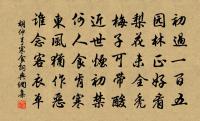 初過一百五
園林正好看
梨花未全
梅子可帶酸
近世禁
何人食寒
東風獨作惡
誰念客衣單
胡仲弓寒食詞典網集